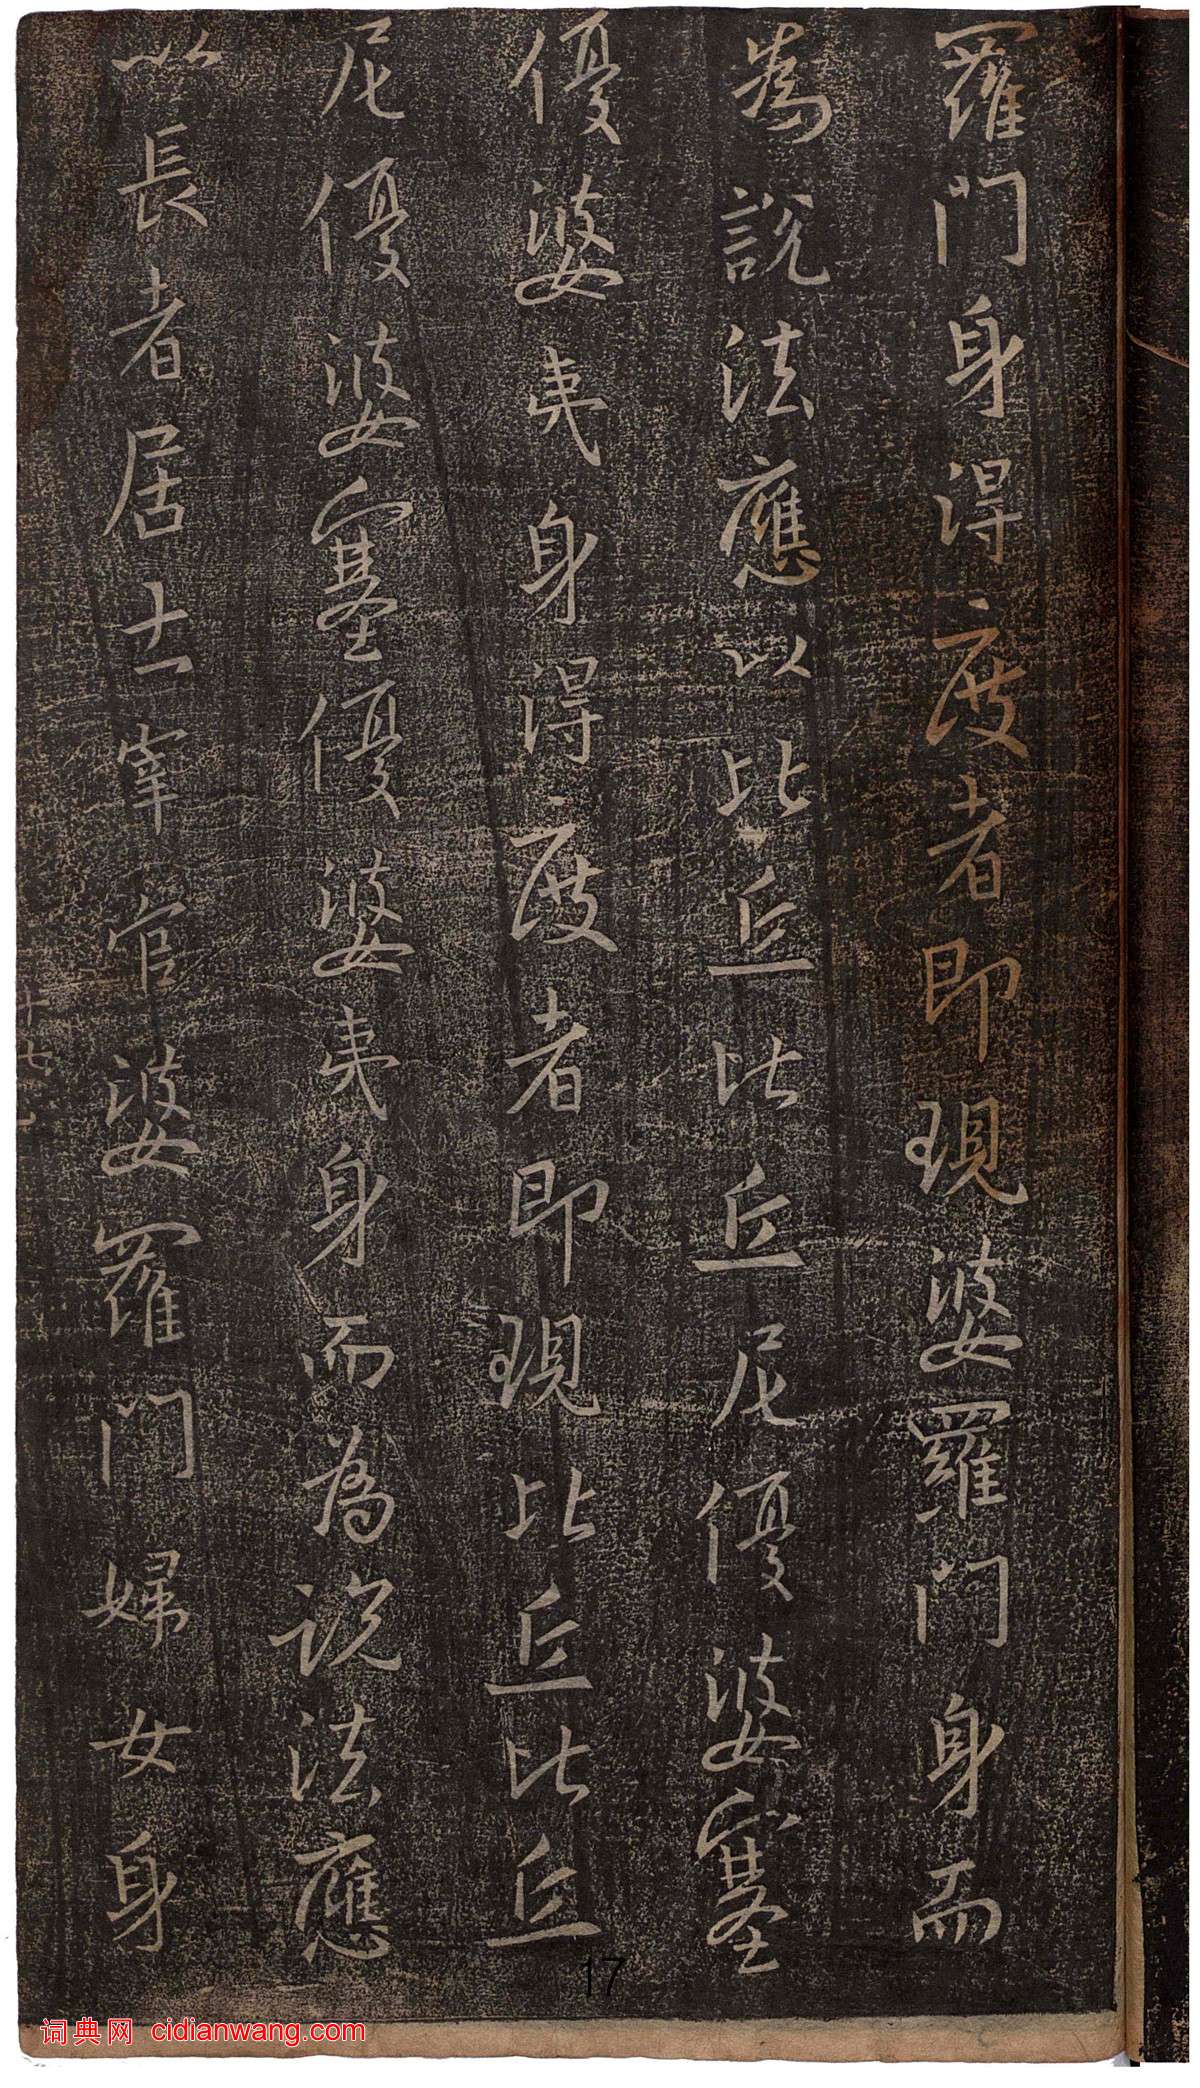 羅門身得度者即現婆羅門身而
為說法應以比丘比丘尼優婆塞
優婆夷身得度者即現比丘比丘
尼優婆塞優婆夷身而為說法應
以長者居士宰官婆羅門婦女身
十七
17
词典网 cidianwang.com